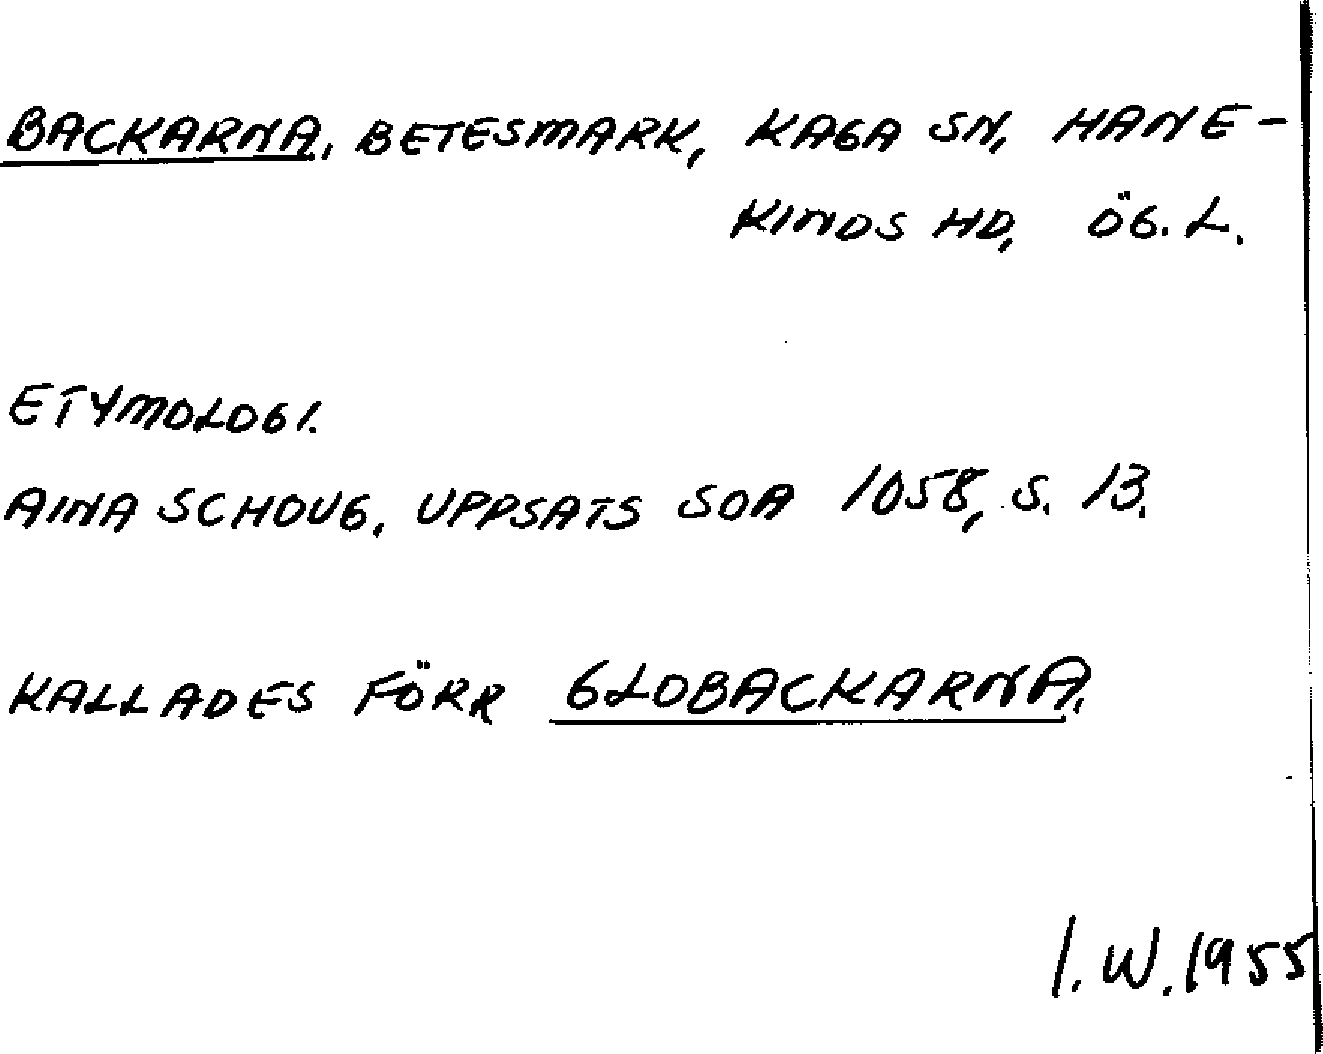 BACKARNA, BETESMARK, KAGA SN, HANE-
KINDS HD, ÖG. L.
ETYMOLOGI.
AINA SCHOUG, UPPSATS SOA 1058, S. 13.
KALLADES FÖRR GLOBACKARNA.
I. W. 1955